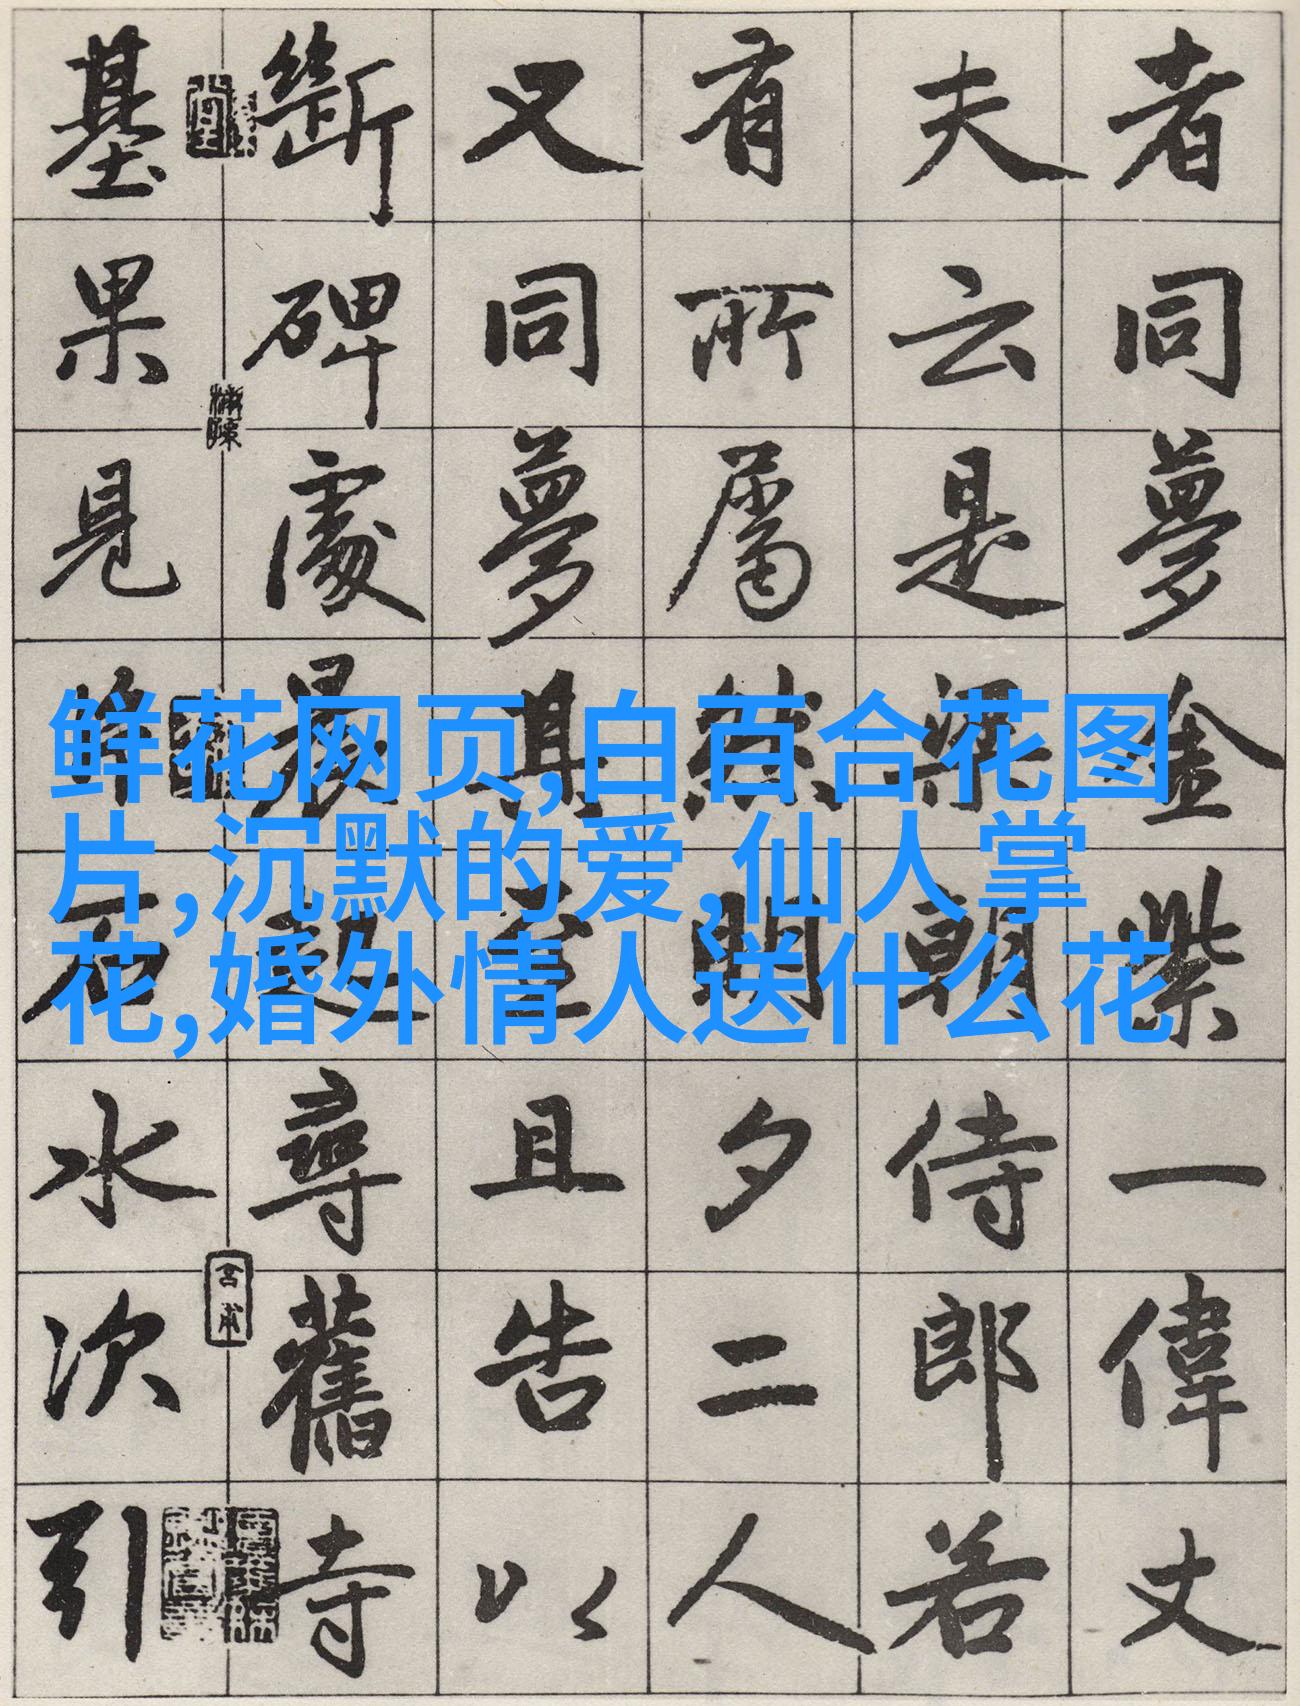 者同夢金紫一偉丈
夫云是梁朝侍郎若
有所屬然明夕二人
又同夢其且告以
斷碑處晨起尋舊寺
基果見石水次引
鲜花网页,白百合花图
片,沉默的爱,仙人掌
花,婚外情人送什么花